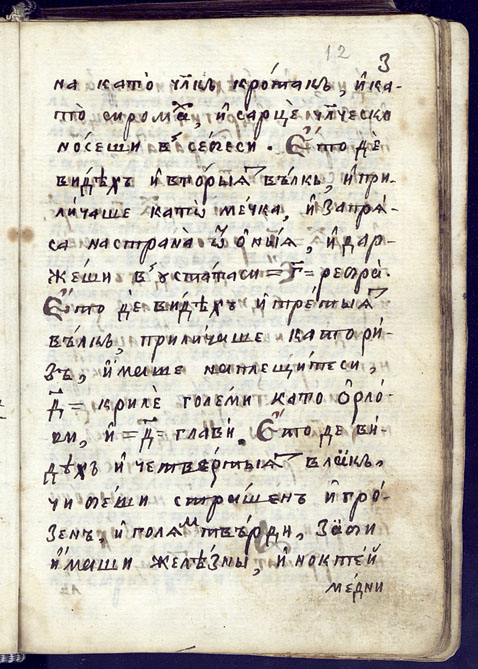 12 3
на като̀ чл҃къ кро́такъ, и҆ка-
то̀ сирома́х, и҆ сарцѐ чл҃ческо
но́сеши в себеси. Е҆то дѐ
ви́дѣхъ и҆ вто́рыѧ вълкь, и҆ при-
ли́чаше като̀ ме́чка, и҆ запрѧ́-
са на страна̀ ѿ о҆ныѧ, и҆ дар-
жеши в устатаси =г҃= ребра̀.
Е҆то дѐ ви́дѣхъ и҆ тре́тыѧ
вълкь, прили́чаше като ри́-
зъ, и҆маше наплещи́теси,
д҃= крилѐ големи като О҆рло-
ви, и҆ =д҃= глави. Е҆то де ви́-
дѣхъ и҆ четве́ртыѧ влакь,
чи беши страшенъ и҆ гро́-
зенъ и҆ голѧм твърди, за́би
и҆маши желѣ́зны, и҆ ноктей
ме́дни